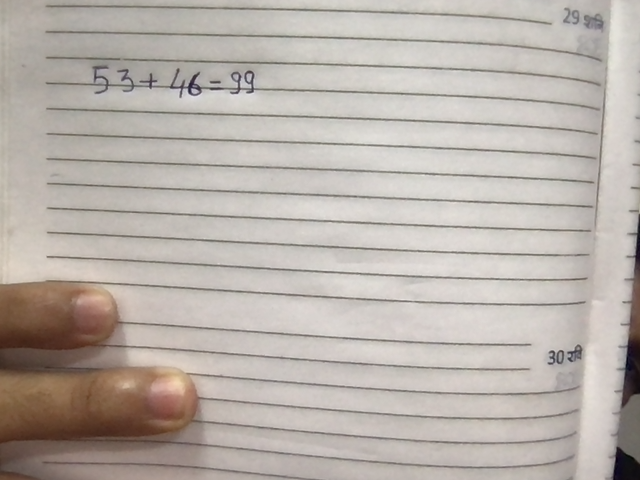 29 शनि
53+46=99
30 रवि